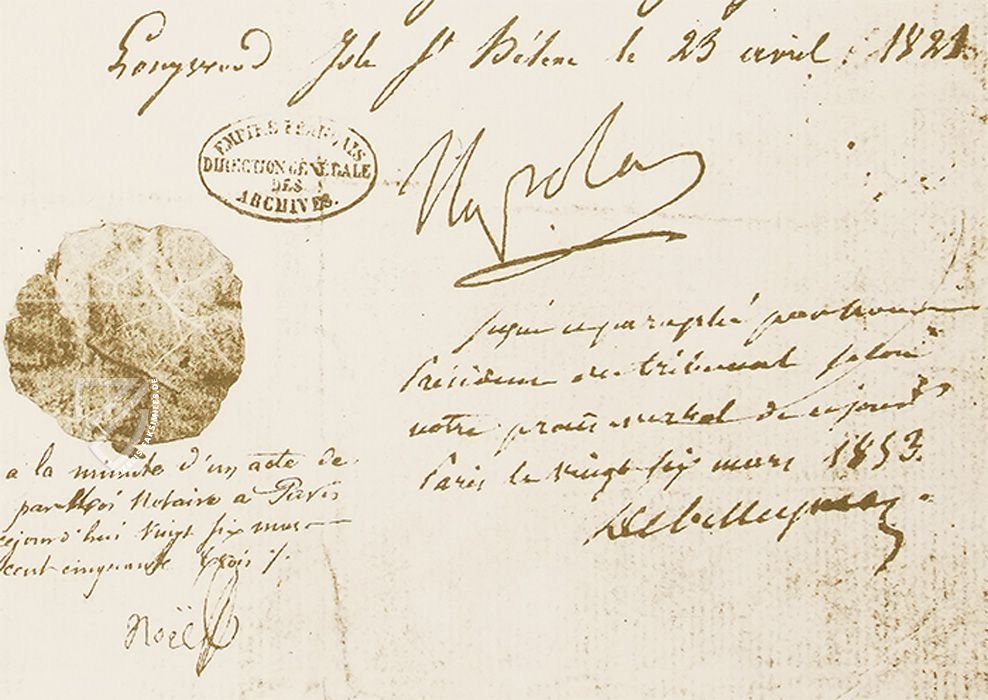 Longwood Isle St Hélene le 23 avril 1821.
EMPIRE FRANÇAIS
DIRECTION GÉNÉRALE
DES
ARCHIVES.
Napoléon
signé et paraphé par nous
Président du tribunal selon
notre procès verbal de ce jour
Paris le vingt six mars 1853.
Debelleyme
a la minute d'un acte de
par Moi Notaire a Paris
cejourd'hui vingt six mars
cent cinquante trois /.
Noël